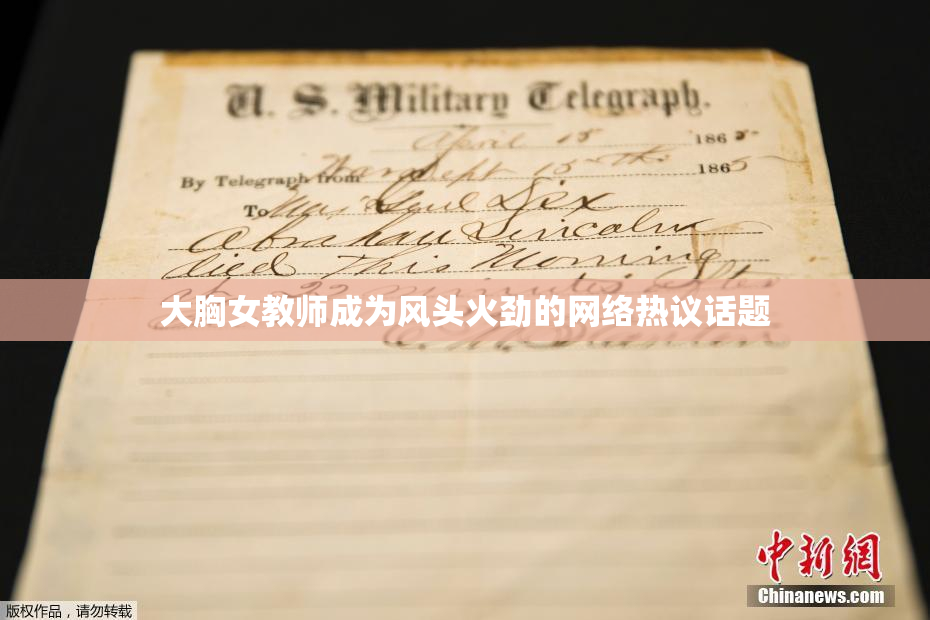 U. S. Military Telegraph.
April 15 1865
By Telegraph from War Dept 15th 1865
To Maj Genl Dix
Abraham Lincoln
died This Morning
at 22 minutes after
大胸女教师成为风头火劲的网络热议话题
E. M. Stanton
中新网
Chinanews.com
版权作品,请勿转载